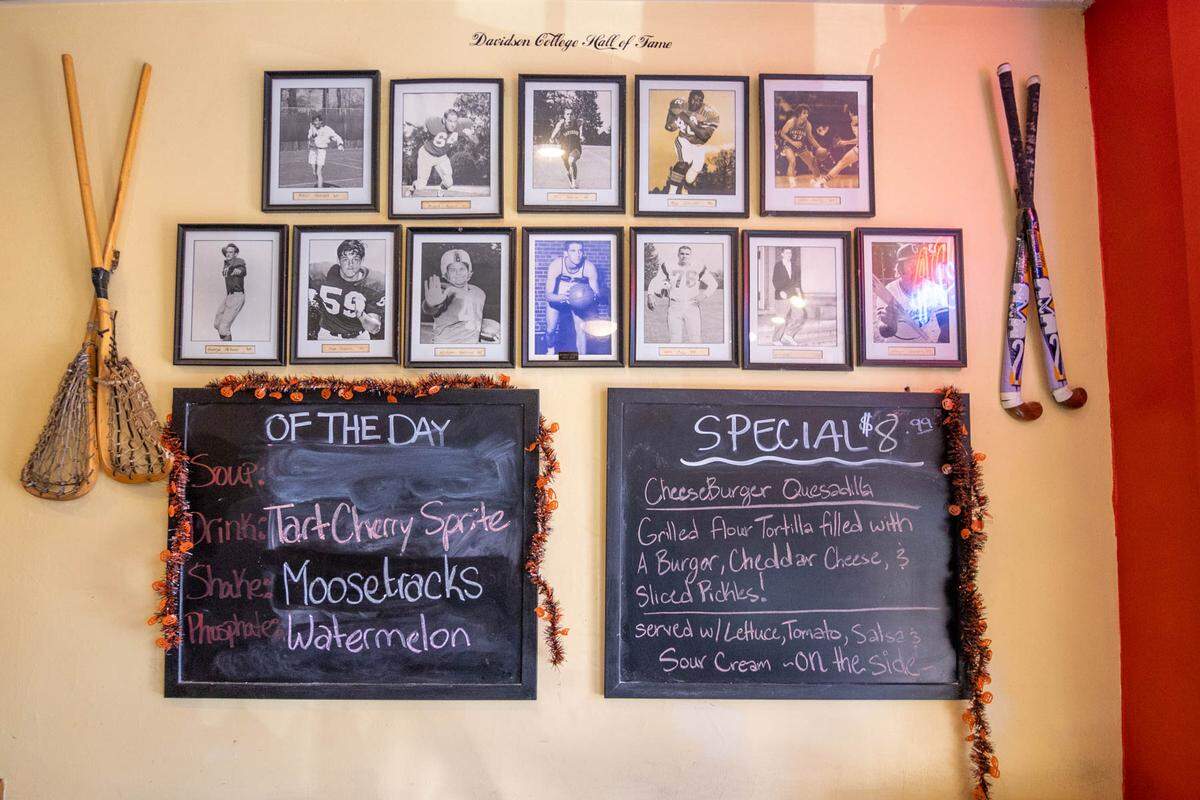 Davidson College Hall of Fame
64
33
59
76
OF THE DAY
Soup:
Drink: Tart Cherry Sprite
Shake: Moosetracks
Phosphate: Watermelon
SPECIAL $8.99
CheeseBurger Quesadilla
Grilled flour Tortilla filled with
A Burger, Cheddar Cheese, &
Sliced Pickles!
served w/ Lettuce, Tomato, Salsa &
Sour Cream ~ on the side ~